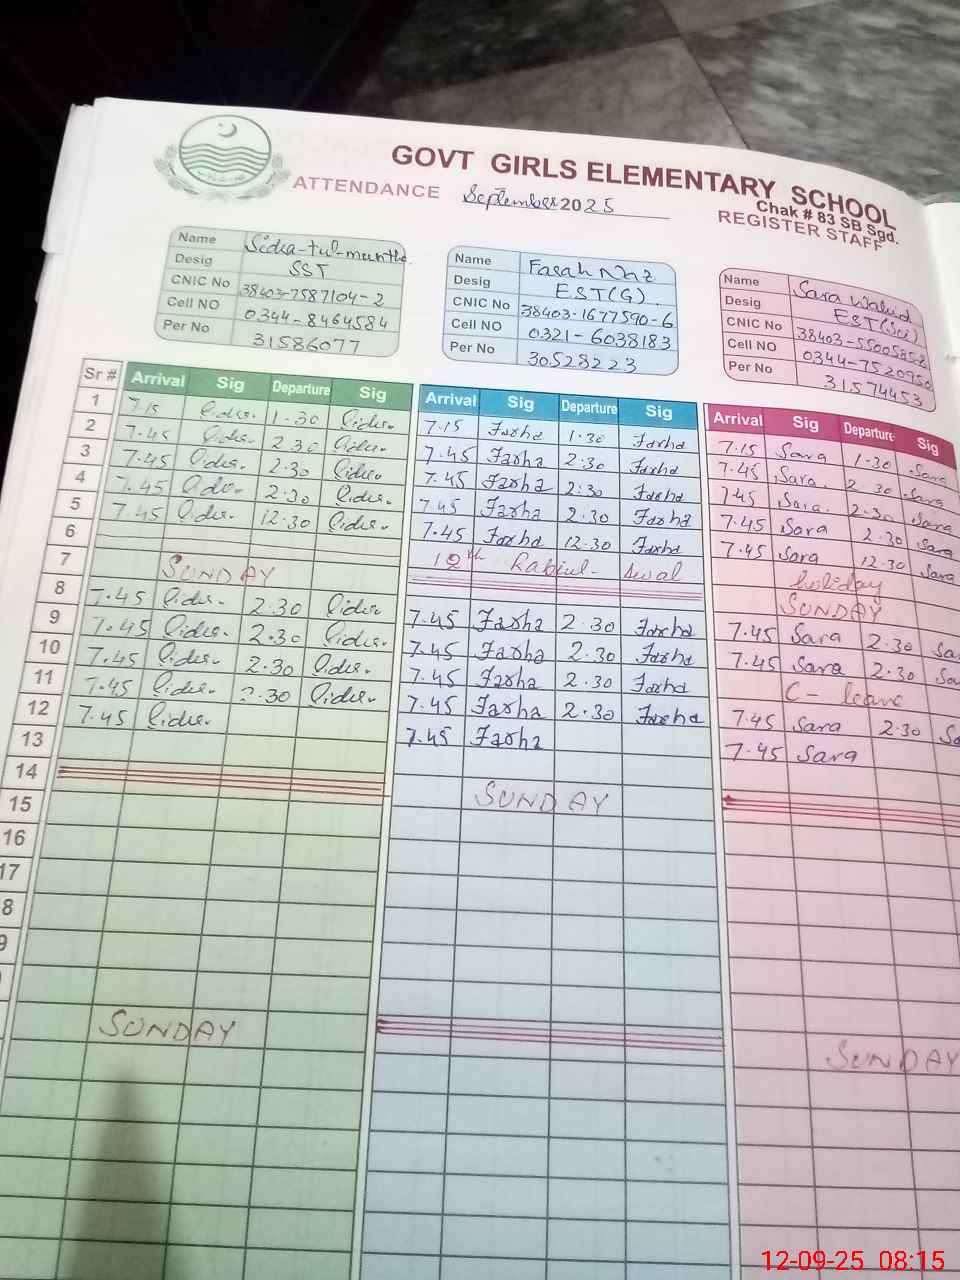 GOVT GIRLS ELEMENTARY SCHOOL
Chak # 83 SB Sgd.
ATTENDANCE September 2025 REGISTER STAFF
Name Sidra-tul-muntha.
Desig SST
CNIC No 38403-7587104-2
Cell NO 0344-8464584
Per No 31586077
Name Farah Naz
Desig EST(G).
CNIC No 38403-1677590-6
Cell NO 0321-6038183
Per No 30528223
Name Sara Walid
Desig EST(Sci)
CNIC No 38403-5500585-8
Cell NO 0344-7520950
Per No 31574453
Sr # Arrival Sig Departure Sig Arrival Sig Departure Sig Arrival Sig Departure Sig
1 7.15 1.30 7.15 Farha 1.30 Farha 7.15 Sara 1.30 Sara
2 7.45 2.30 7.45 Farha 2.30 Farha 7.45 Sara. 2.30 Sara
3 7.45 2.30 7.45 Farha 2:30 Farha 7.45 Sara. 2.30 Sara
4 7.45 2.30 7.45 Farha 2.30 Farha 7.45 Sara 2.30 Sara
5 7.45 12.30 7.45 Farha 12.30 Farha 7.45 Sara 12.30 Sara
6 12th Rabiul-Awal holiday
7 SUNDAY SUNDAY
8 7.45 2.30 7.45 Farha 2.30 Farha 7.45 Sara 2.30 Sa
9 7.45 2.30 7.45 Farha 2.30 Farha 7.45 Sara 2.30 Sa
10 7.45 2.30 7.45 Farha 2.30 Farha C- leave
11 7.45 2.30 7.45 Farha 2.30 Farha 7.45 Sara 2.30 Sa
12 7.45 7.45 Farha 7.45 Sara
13
14 SUNDAY
15
16
17
8
9
SUNDAY SUNDAY
12-09-25 08:15